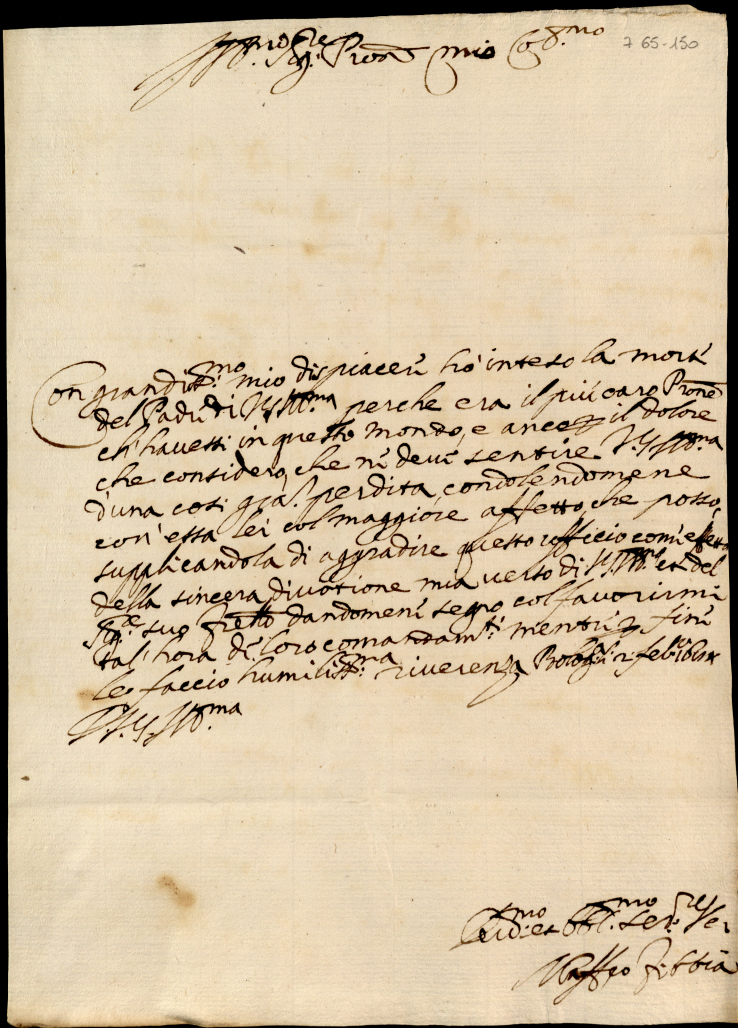 Ill.mo Sig.re Pron mio Col.mo
765-150
Con grandiss.mo mio dispiacere hò inteso la morte
del Padre di V.S. Ill.ma perche era il più caro Prone
ch'havessi in questo mondo, e anco p il dolore
che considero, che ne deve sentire V.S. Ill.ma
d'una così gra. perdita, condolendomene
con essa lei col maggiore affetto, che posso,
supplicandola di aggradire questo officio com'effetto
della sincera divotione mia verso di V.S. Ill.ma et del
Sig.re suo fratello dandomene segno col favorirmi
tal'hora de' loro comandam.ti mentre p fine
le faccio humiliss.ma riverenza Bologna 2 feb.o
Di V.S. Ill.ma
Dev.mo et Obl.mo Ser.re Ver
Maffeo Fibbia